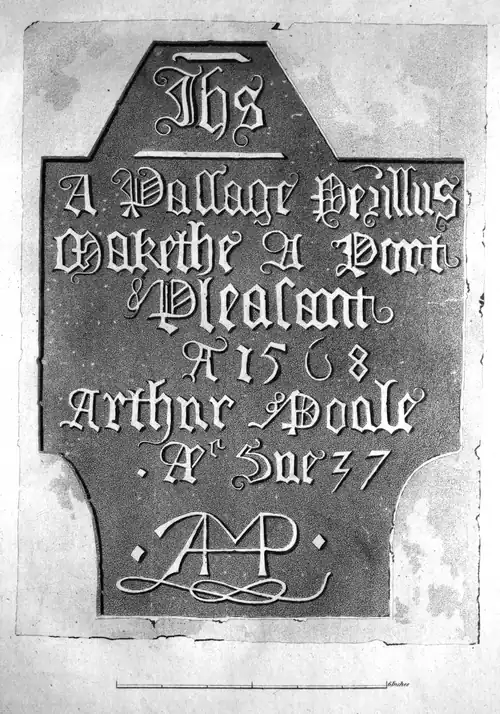 Ihs
A Passage Perillus
Makethe A Port
Pleasant
A 1568
Arthur Poole
Æ Sue 37
AMP
6 Inches